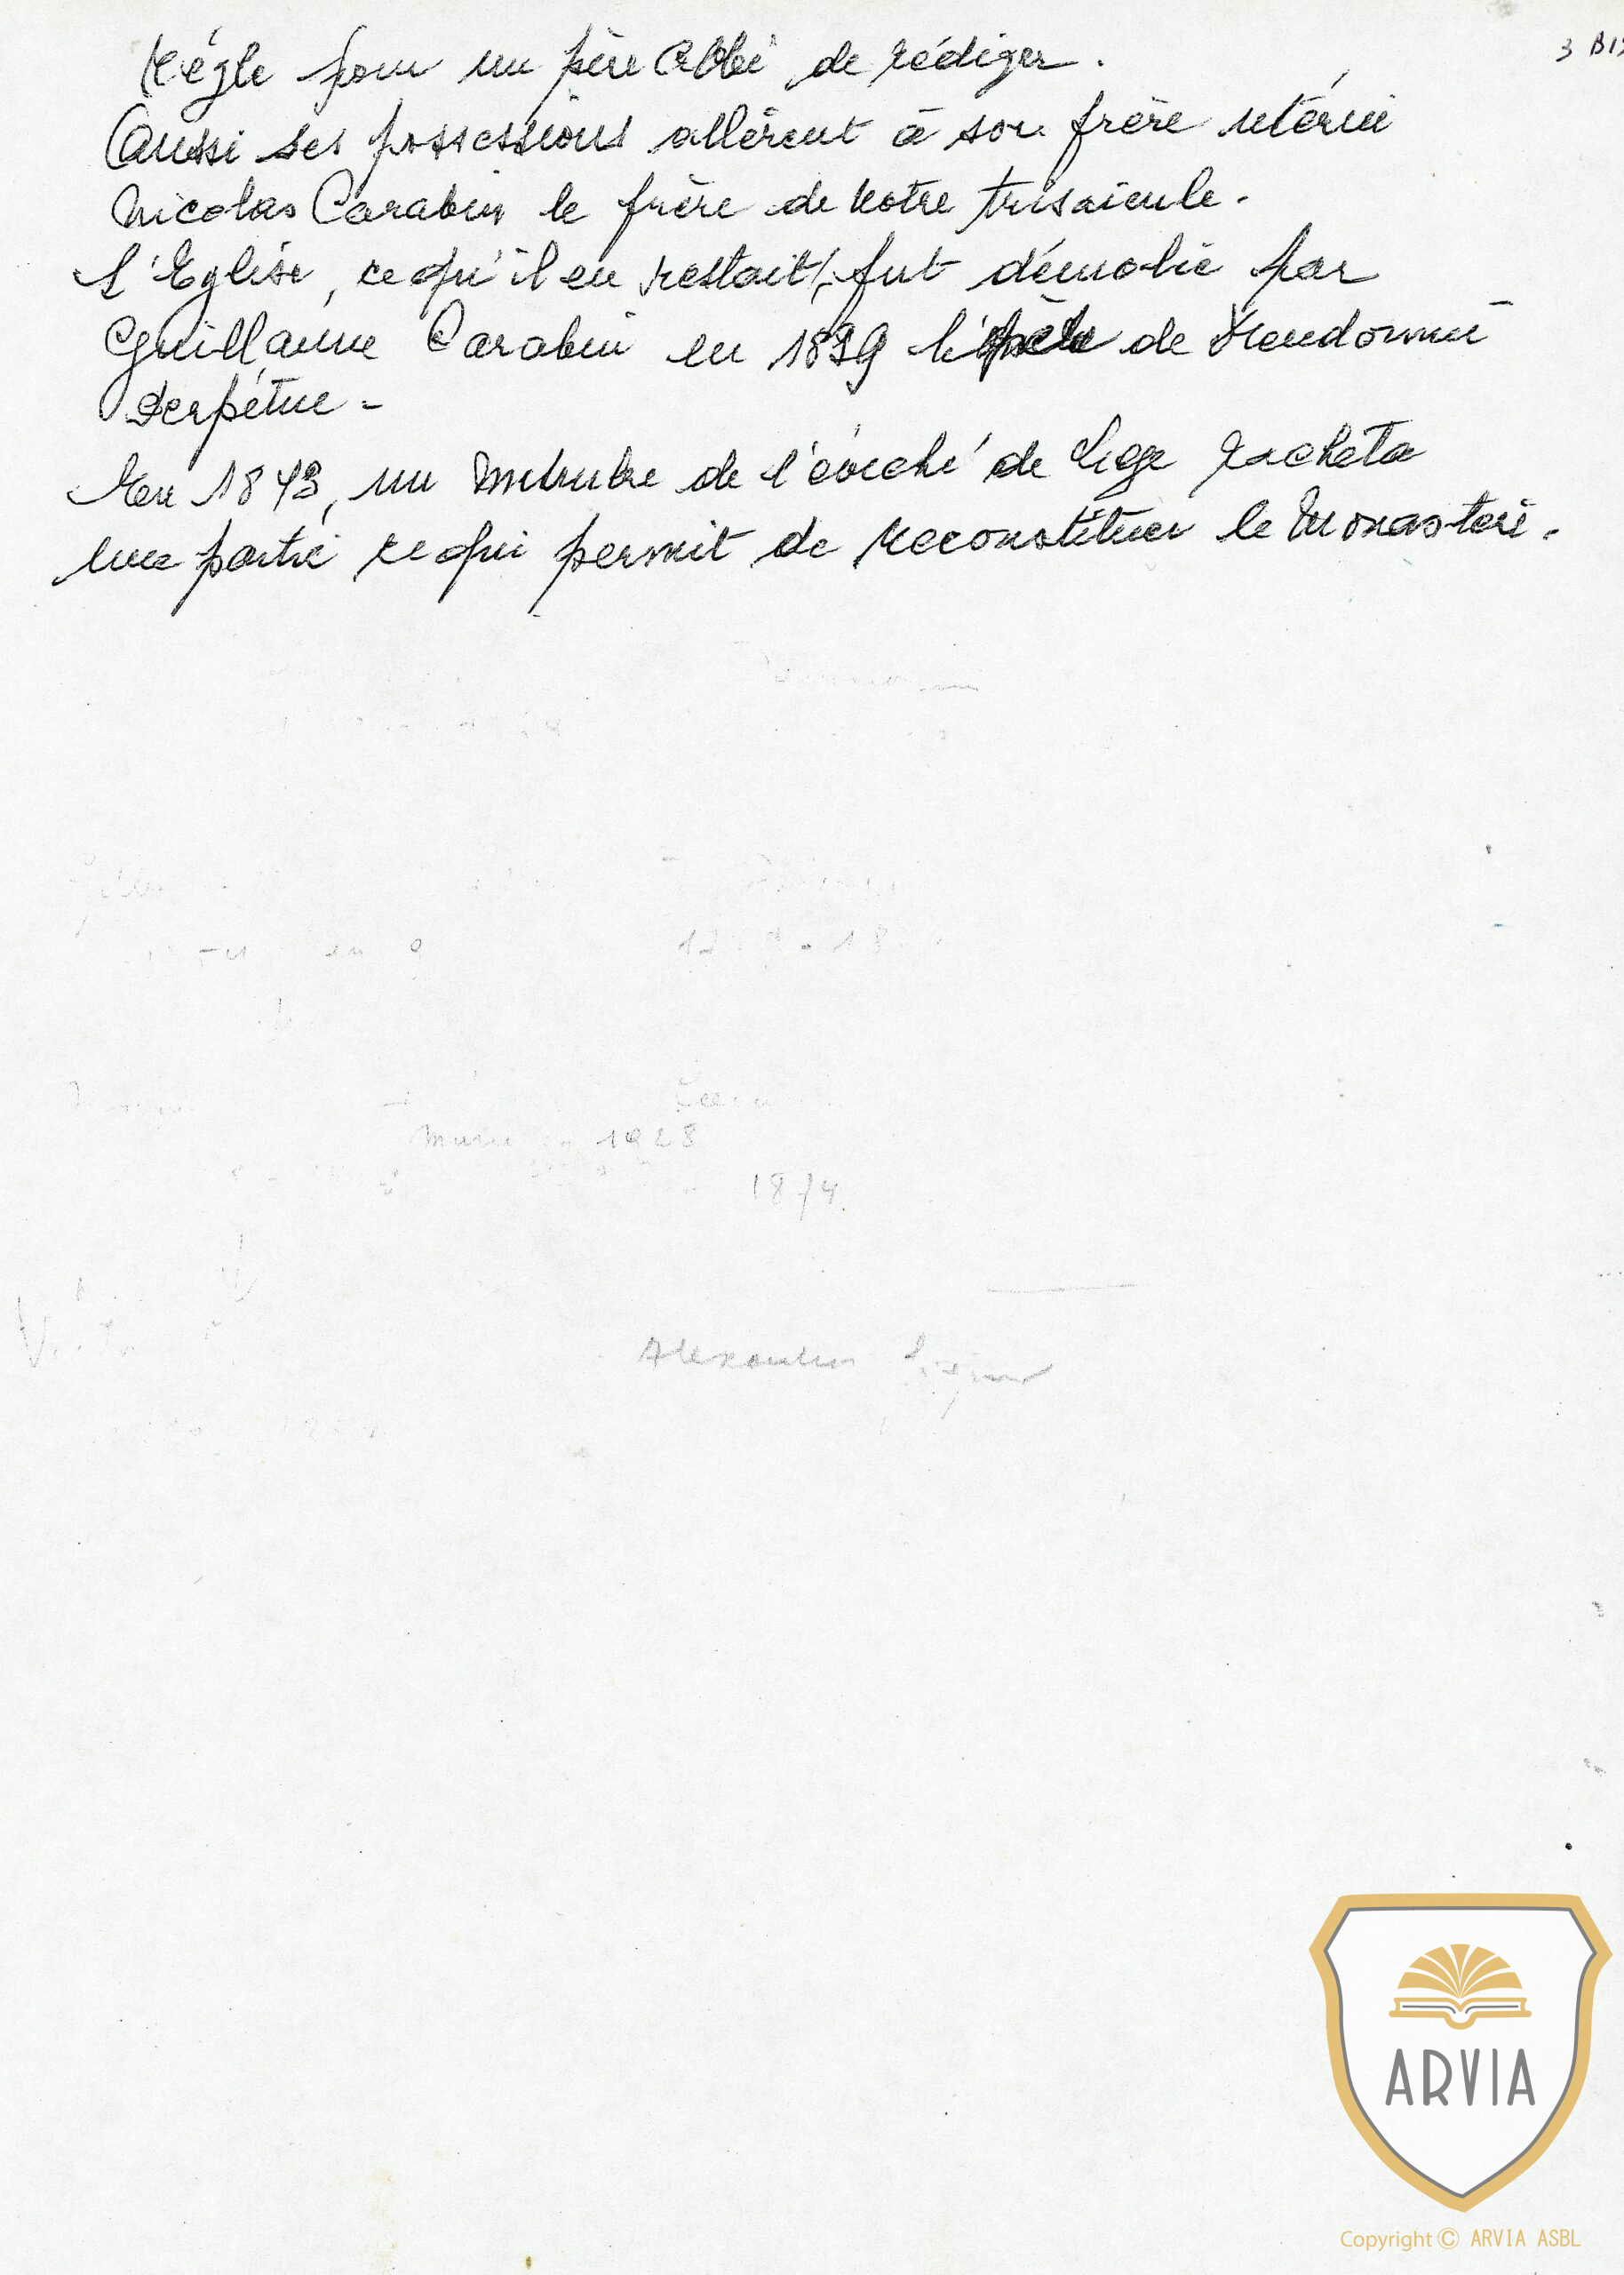 3 BIS
Règle pour un père Abbé de rédiger.
Aussi ses possessions allèrent à son frère utérin
Nicolas Carabin le frère de notre trisaieule.
L'Eglise, ce qu'il en restait, fut démolie par
Guillaume Carabin en 1839 de
Perpétue -
En 1843, un membre de l'évéché de Liege racheta
une partie ce qui permit de reconstituer le Monastère.
1874.
ARVIA
Copyright © ARVIA ASBL